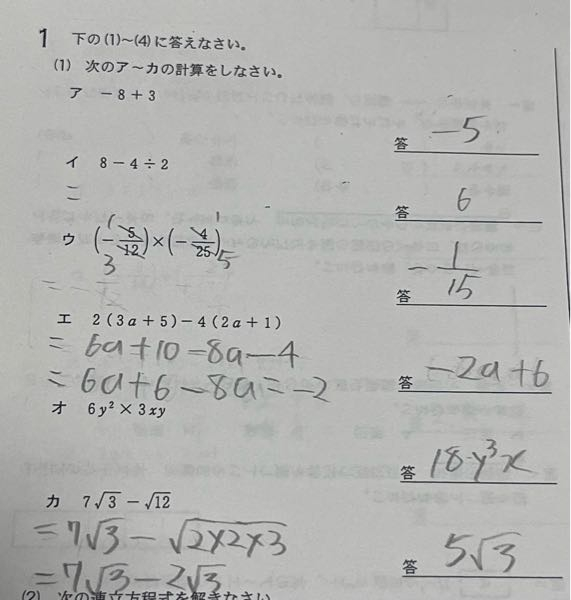 1 下の(1)~(4)に答えなさい。
(1) 次のア~カの計算をしなさい。
ア －8＋3
答 −5
イ 8－4÷2
=
答 6
ウ (－5/12)×(－4/25)
1 1
3 5
答 −1/15
エ 2(3a＋5)－4(2a＋1)
= 6a+10−8a−4
= 6a+6−8a=−2
答 −2a+6
オ 6y²×3xy
答 18y³x
カ 7√3－√12
=7√3−√2×2×3
=7√3−2√3
答 5√3
(2) 次の連立方程式を解きなさい